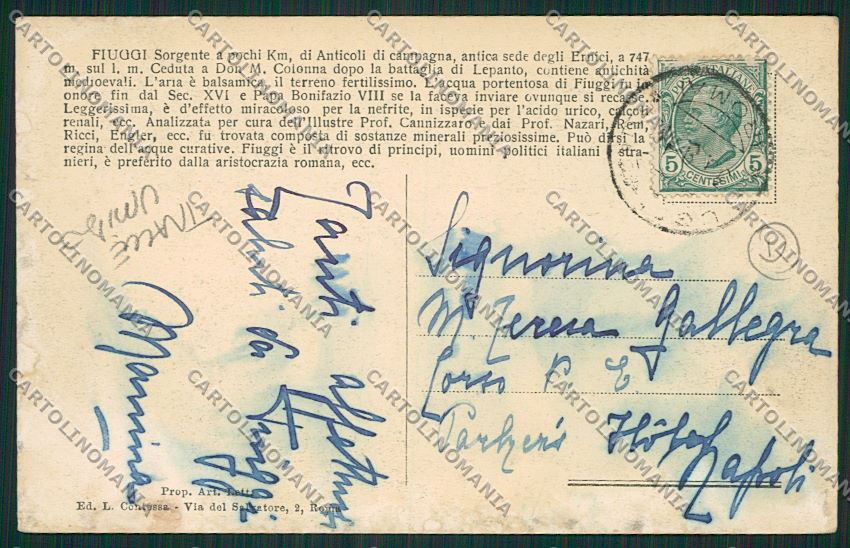 FIUGGI Sorgente a pochi Km, di Anticoli di campagna, antica sede degli Ernici, a 747
m, sul l. m. Ceduta a Don M. Colonna dopo la battaglia di Lepanto, contiene antichità
medioevali. L'aria è balsamica, il terreno fertilissimo. L'acqua portentosa di Fiuggi in
onore fin dal Sec. XVI e Papa Bonifazio VIII se la faceva inviare ovunque si recasse.
Leggerissima, è d'effetto miracoloso per la nefrite, in ispecie per l'acido urico, calcoli
renali, ecc. Analizzata per cura dell'Illustre Prof. Cannizzaro e dai Prof. Nazari, Rem,
Ricci, Engler, ecc. fu trovata composta di sostanze minerali preziosissime. Può dirsi la
regina dell'acque curative. Fiuggi è il ritrovo di principi, uomini politici italiani e stra-
nieri, è preferito dalla aristocrazia romana, ecc.
5 5
CENTESIMI
Tanti affettuosi
saluti da Fiuggi
Mammina
Signorina
M. Teresa Gallegra
Corso V. E.
Parker's Hôtel
Napoli
Prop. Art. Lett.
Ed. L. Contessa - Via del Salvatore, 2, Roma
CARTOLINOMANIA